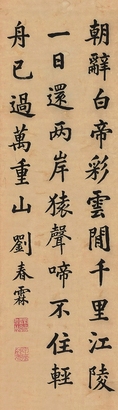 朝辭白帝彩雲間千里江陵
一日還两岸猿聲啼不住輕
舟已過萬重山 劉春霖